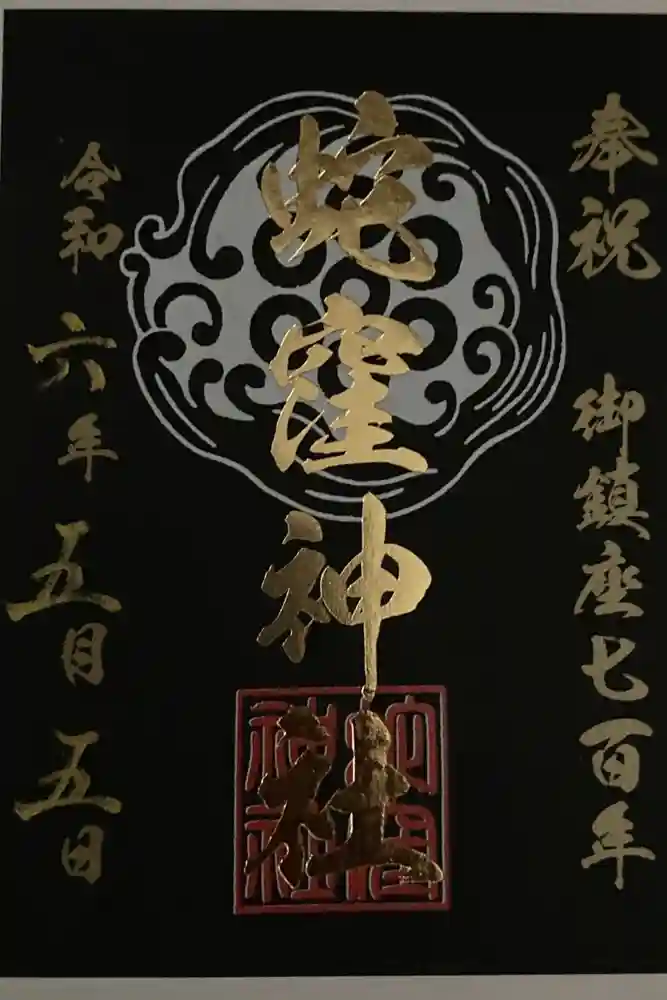 奉祝 御鎮座七百年
蛇窪神社
蛇窪
神社
令和六年五月五日